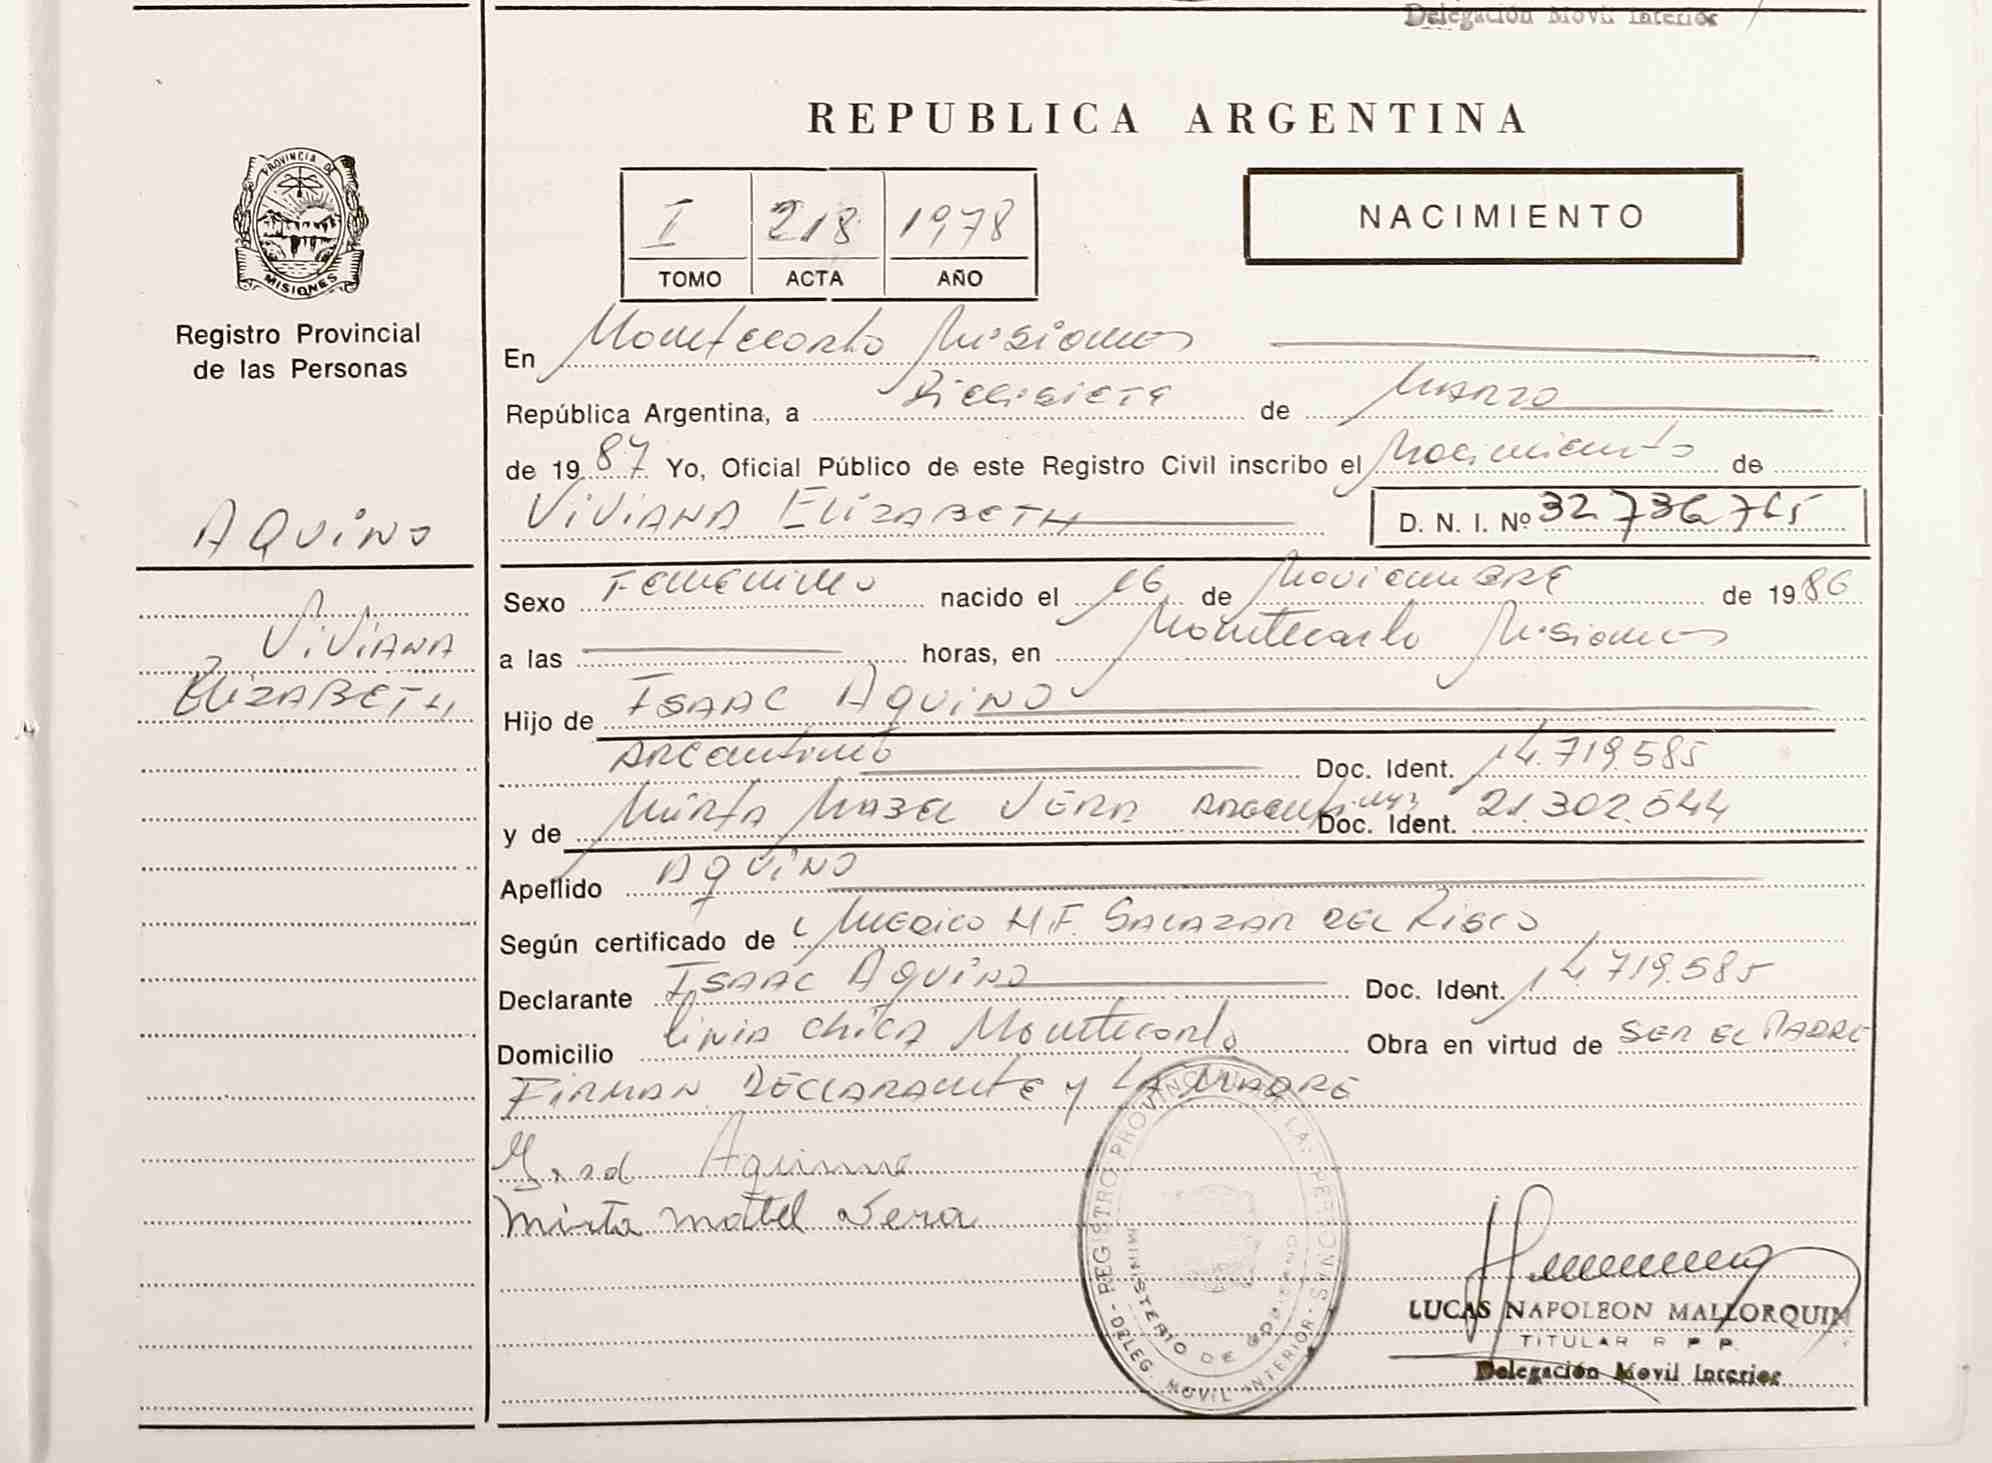 Delegación Movil Interior
REPUBLICA ARGENTINA
PROVINCIA DE
MISIONES
Registro Provincial
de las Personas
I 218 1978
TOMO ACTA AÑO
NACIMIENTO
En Montecarlo Misiones
República Argentina, a Diecisiete de Marzo
de 1987 Yo, Oficial Público de este Registro Civil inscribo el Nacimiento de
VIVIANA ELIZABETH D. N. I. Nº 32 736 765
AQUINO
VIVIANA
ELIZABETH
Sexo Femenino nacido el 26 de Noviembre de 1986
a las horas, en Montecarlo Misiones
Hijo de ISAAC AQUINO
Argentino Doc. Ident. 14.719.585
y de Mirta Mabel Vera Argentina Doc. Ident. 21.302.544
Apellido AQUINO
Según certificado de Medico H.F. Salazar del Risco
Declarante ISAAC AQUINO Doc. Ident. 14.719.585
Domicilio Linia Chica Montecarlo Obra en virtud de SER EL PADRE
Firman Declarante y La Madre
Aquino
Mirta Mabel Vera
REGISTRO PROVINCIAL DE LAS PERSONAS
MINISTERIO DE GOBIERNO
DELEG. MOVIL INTERIOR
LUCAS NAPOLEON MALLORQUIN
TITULAR R P P
Delegación Movil Interior